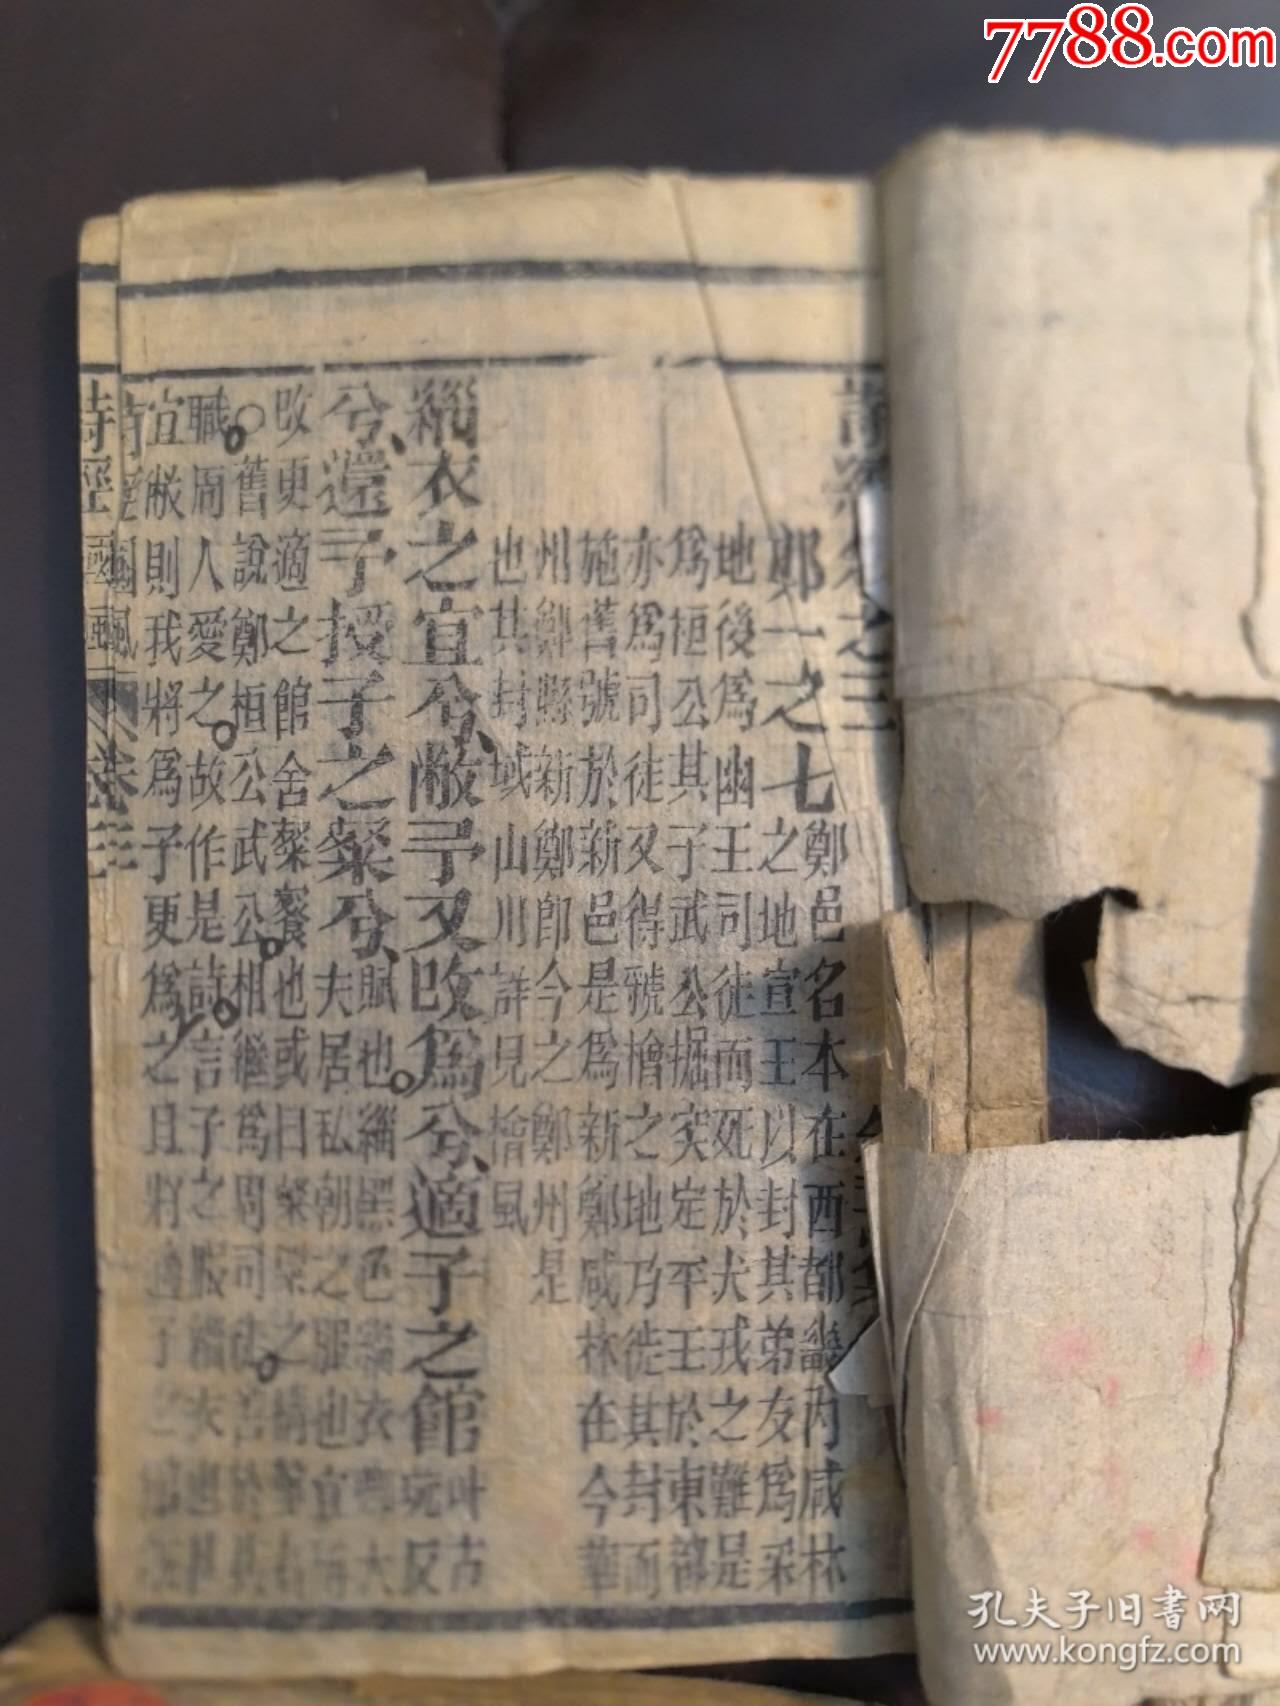 7788.com
詩經卷之三
鄭一之七
鄭邑名本在西都畿內咸林
之地宣王以封其弟友爲采
地後爲幽王司徒而死於犬戎之難是
爲桓公其子武公掘突定平王於東都
亦爲司徒又得虢檜之地乃徙其封而
施舊號於新邑是爲新鄭咸林在今華
州鄭縣新鄭卽今之鄭州是
也其封域山川詳見檜風
緇衣之宜兮敝予又改爲兮適子之館
叶古
玩反
兮還予授子之粲兮
賦也緇黑色緇衣卿大
夫居私朝之服也宜稱
改更適之館舍粲餐也或曰粲粟之精鑿者
○舊說鄭桓公武公相繼爲周司徒善於其
職周人愛之故作是詩言子之服緇衣也甚
宜敝則我將爲子更爲之且將適子之館
詩經 國風 卷三
孔夫子旧書网
www.kongfz.com